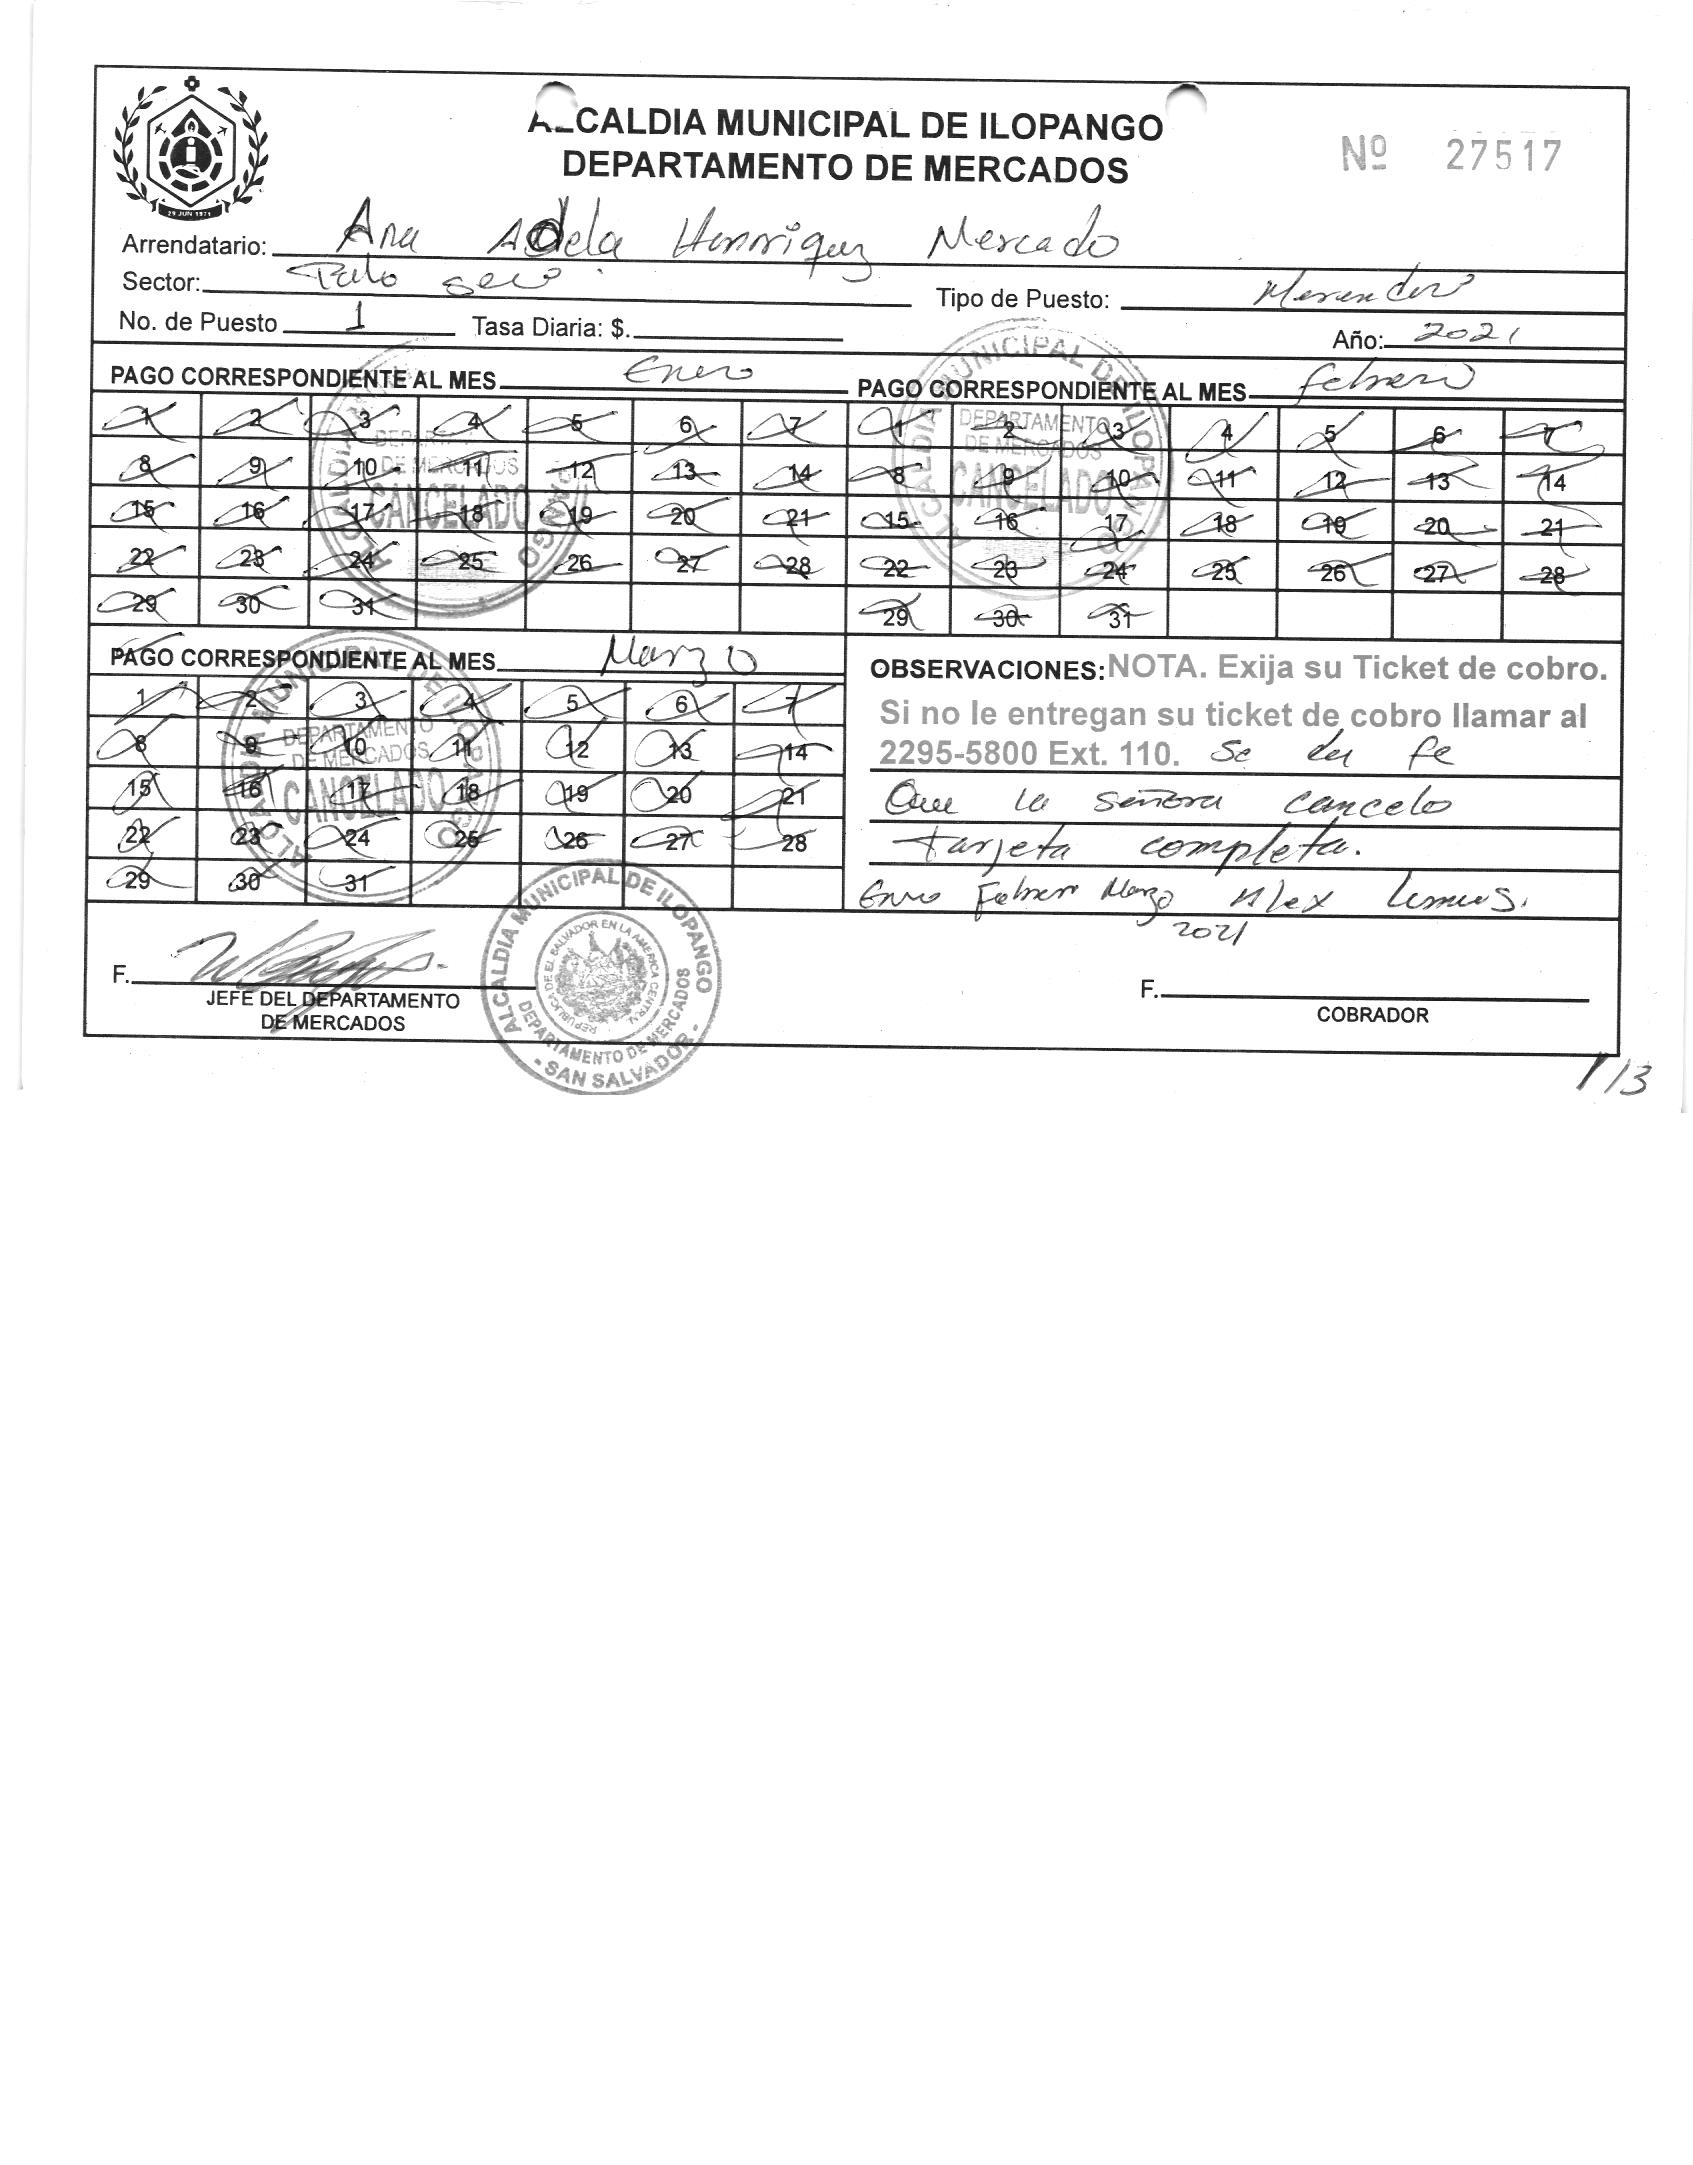 ALCALDIA MUNICIPAL DE ILOPANGO
DEPARTAMENTO DE MERCADOS
Nº 27517
29 JUN 1971
Arrendatario: Ana Adela Henriquez Mercado
Sector: Palo Seco
Tipo de Puesto: Merendero
No. de Puesto 1 Tasa Diaria: $.
Año: 2021
PAGO CORRESPONDIENTE AL MES Enero
1 2 3 4 5 6 7
8 9 10 11 12 13 14
15 16 17 18 19 20 21
22 23 24 25 26 27 28
29 30 31
ALCALDIA MUNICIPAL DE ILOPANGO
DEPARTAMENTO
DE MERCADOS
CANCELADO
PAGO CORRESPONDIENTE AL MES Febrero
1 2 3 4 5 6 7
8 9 10 11 12 13 14
15 16 17 18 19 20 21
22 23 24 25 26 27 28
29 30 31
ALCALDIA MUNICIPAL DE ILOPANGO
DEPARTAMENTO
DE MERCADOS
CANCELADO
PAGO CORRESPONDIENTE AL MES Marzo
1 2 3 4 5 6 7
8 9 10 11 12 13 14
15 16 17 18 19 20 21
22 23 24 25 26 27 28
29 30 31
ALCALDIA MUNICIPAL DE ILOPANGO
DEPARTAMENTO
DE MERCADOS
CANCELADO
OBSERVACIONES: NOTA. Exija su Ticket de cobro.
Si no le entregan su ticket de cobro llamar al
2295-5800 Ext. 110. Se da fe
Que la señora cancelo
tarjeta completa.
Enero Febrero Marzo Alex Lemus.
2021
F.
JEFE DEL DEPARTAMENTO
DE MERCADOS
ALCALDIA MUNICIPAL DE ILOPANGO
REPUBLICA DE EL SALVADOR EN LA AMERICA CENTRAL
DEPARTAMENTO DE MERCADOS
- SAN SALVADOR -
F.
COBRADOR
113